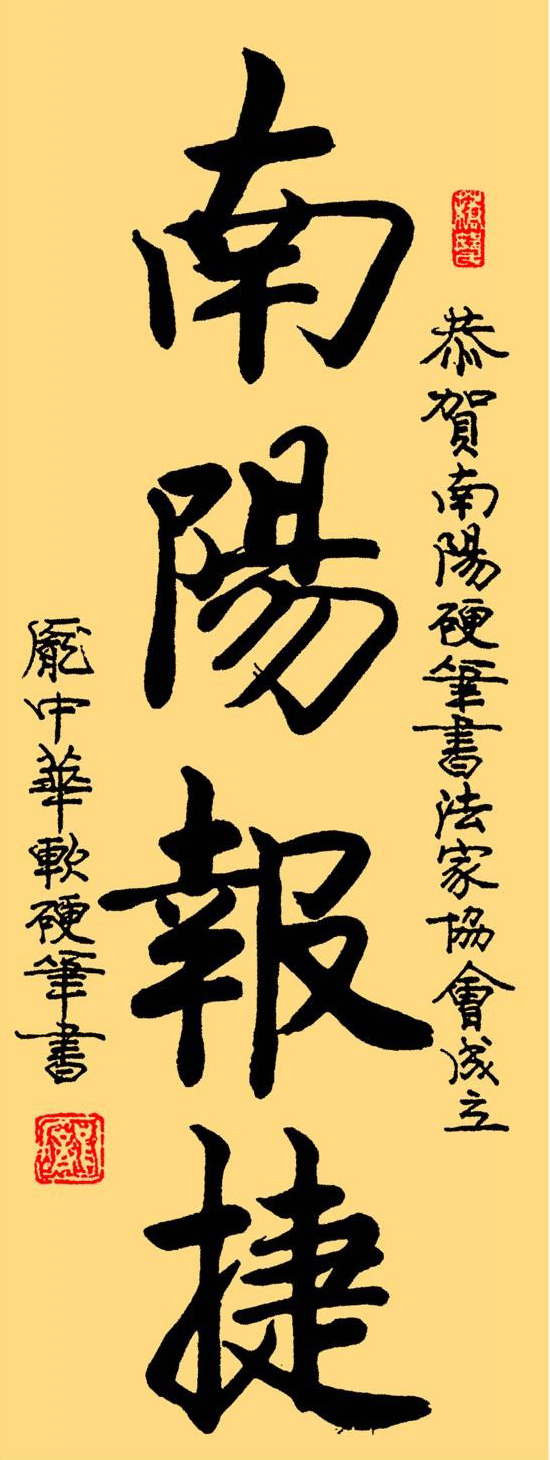 恭賀南陽硬筆書法家協會成立
南陽報捷
龐中華軟硬筆書